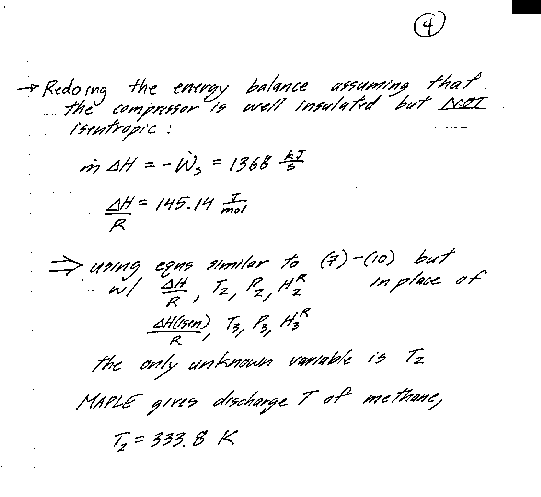 (4)
→ Redoing the energy balance assuming that
the compressor is well insulated but NOT
isentropic:
ṁ ΔH = -Ẇs = 1368 kJ/s
ΔH/R = 145.14 J/mol
⇒ using eqns similar to (7)-(10) but
w/ ΔH/R, T2, P2, H2^R in place of
ΔH(isen)/R, T3, P3, H3^R
the only unknown variable is T2
MAPLE gives discharge T of methane,
T2 = 333.8 K